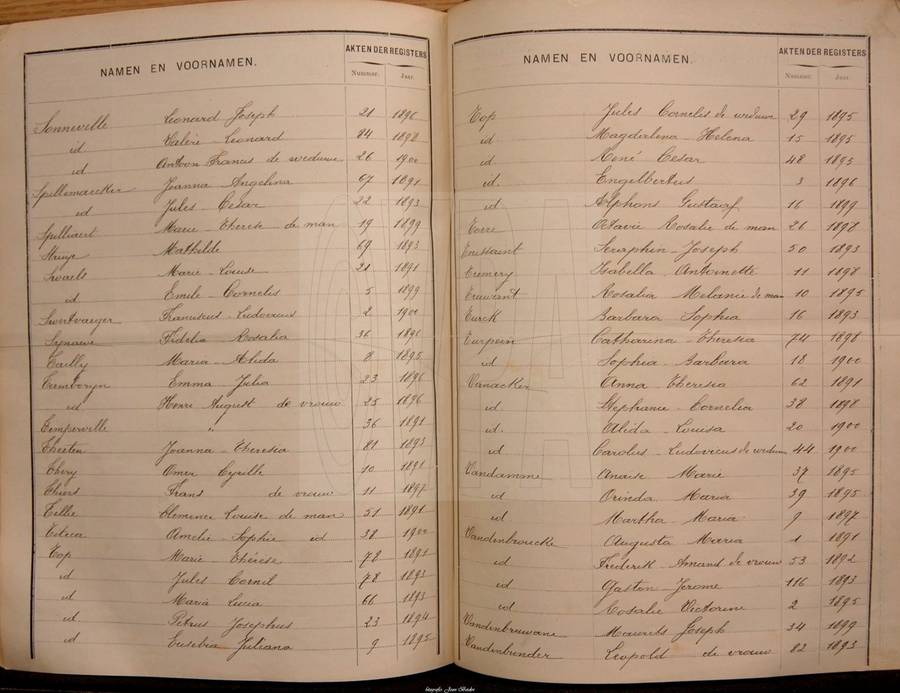 NAMEN EN VOORNAMEN. AKTEN DER REGISTERS
Nummer. Jaar.
Sonneville Leonard Joseph 21 1896
id Valère Leonard 84 1898
id Antoon Francus de weduwe 26 1900
Spillemaeckers Joanna Angelina 67 1891
id Jules Cesar 22 1893
Spillaert Marie Therese de man 19 1899
Struye Mathilde 69 1893
Swaels Marie Louise 21 1891
id Emile Cornelis 5 1899
Franciscus Ludovicus 2 1900
Synaeve Fidelia Rosalia 36 1896
Tailly Maria Alida 8 1895
Emma Julia 23 1896
id Henri August de vrouw 25 1896
Temperville " 36 1891
Theeten Joanna Theresia 81 1893
Thery Omer Cyrille 10 1891
Thiers Frans de vrouw 11 1897
Tillie Clemence Louise de man 51 1891
Amelie Sophie id 38 1900
Top Marie Thérèse 78 1892
id Jules Cornil 78 1893
id Maria Lucia 66 1893
id Petrus Josephus 23 1894
id Eusebia Juliana 9 1895
NAMEN EN VOORNAMEN. AKTEN DER REGISTERS
Nummer. Jaar.
Top Jules Cornelis de weduwe 29 1895
id Magdalena Helena 15 1895
id René Cesar 48 1895
id. Engelbertus 3 1896
id Alphons Gustaaf 16 1899
Torre Octavie Rosalie de man 26 1898
Toussaint Seurphin Joseph 50 1893
Tremery Isabella Antoinette 11 1898
Truwant Rosalia Melanie de man 10 1895
Turck Barbara Sophia 16 1893
Turpein Catharina Theresia 74 1898
id Sophia Barbara 18 1900
Vanacker Anna Theresia 62 1891
id Stephanie Cornelia 38 1898
id Alida Louisa 20 1900
id Carolus Ludovicus de weduwe 44 1900
Vandamme Anaïse Marie 37 1895
id Orinda Maria 39 1895
id Martha Maria 9 1897
Vandenbroucke Augusta Maria 1 1891
id Frederik Amand de vrouw 53 1892
id Gaston Jerome 116 1893
id Rosalie Victorine 2 1895
Vandenbruwane Maurits Joseph 34 1899
Vandenbunder Leopold de vrouw 82 1893